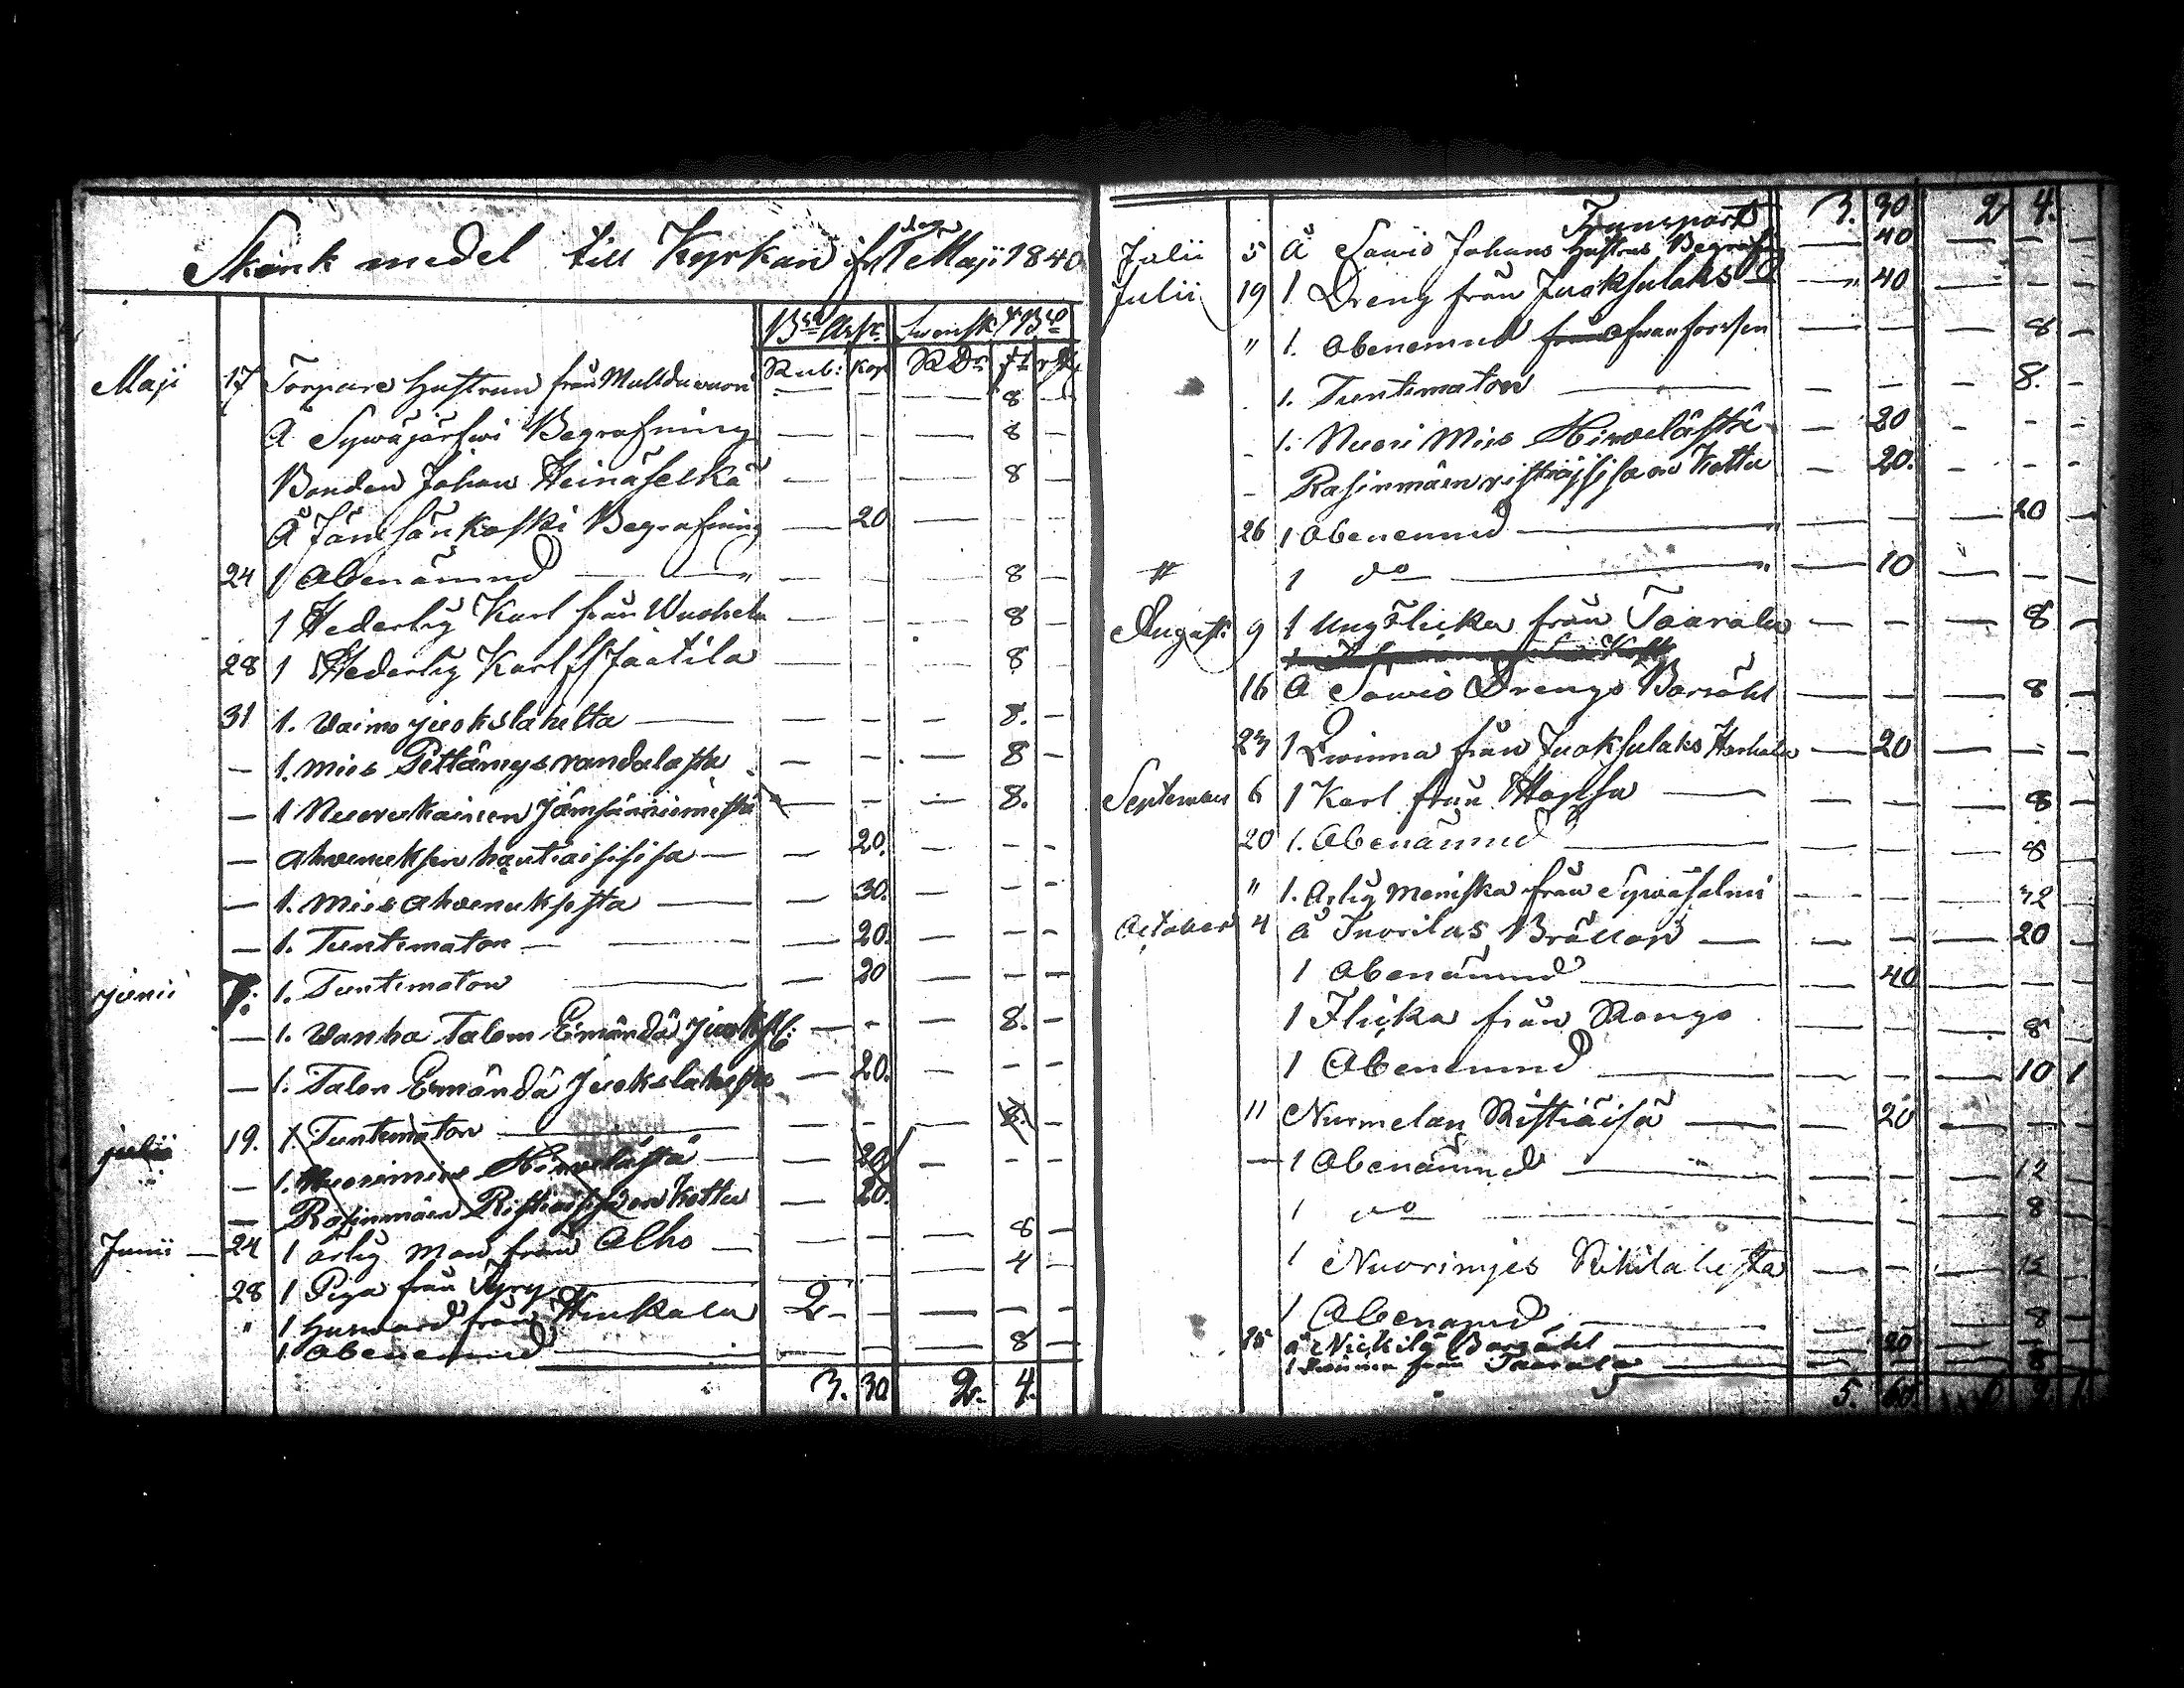 Skänk medel till Kyrkan ifrå 1 Maji 1840
Rub: Kop RDr
Maji 17 Torpare Hustrun från Multduvuori — — — 8 —
Å Sywäjärfwi Begrafning — — — 8 —
Bonden Johan Heinäselkä — — — 8 —
Å Jämsänkoski Begrafning — 20 — — —
24 1 Obenämnd — — — 8 —
1 Hederlig Karl från Wuohela — — — 8 —
28 1 Hederlig Karl Jäätilä — — — 8 —
31 1. Vaimo juokslahelta — — — 8. —
— 1. mies Pettämys randalasta — — — 8 —
— 1 Nuorukainen Jämsänniemestä — — — 8.
— ahvenuksen hautiaisisisa — — 20. — — —
— 1. Mies ahvenuksesta — — 30. — — —
— 1. Tuntematon — — 20. — — —
junii 7. 1. Tuntematon — — 20 — — —
— 1. Vanha Talon Emändä — — — 8. —
— 1. Talon Emändä Juokslahesta — 20. — — —
julii 19. 1. Tuntematon — — — — 8.
— 1. Nuorimies Hirvelästä — — 20 — — —
— Rasinmäen Ristiäisisä on Kottu — 20.
Junii — 24 1 ärlig man från Alho — — — — 8 —
28 1 Piga från Tyry — — — 4 —
" 1 från Hinkala 2 — — — — —
1 Obenemnd — — — 8 —
3. 30 2. 4.
Transport 3. 30 2 4.
Julii 5 Å Sawio Johans Hustrus Begrafn — 40 — — —
Julii 19 1 Dreng från Juoksulaks — 40 — — —
" 1. Obenemnd — — — 8 —
1. Tuntematon — — — — 8.
1. Nuori Mies Hirvelästä — 20 — — —
Rasinmäen ristiäisisä on Kottu — 20. — — —
26 1 Obenemnd — — — — 20 —
" 1 do — — 10 — — —
Augusti 9 1 Ung Flicka från Taarala — — — 8 —
16 Å Sawio Drengs Barsöhl — — — 8 —
23 1 Qwinna från Juoksulaks — 20 — — —
September 6 1 Karl från Hopsu — — — — 8 —
20 1. Obenämnd — — — — 8 —
" 1. Ärlig Meniska från Sywäsalmi — — — 32 —
October 4 å Juorilas Bröllop — — — — 20 —
1 Obenämnd — — 40 — — —
1 Flicka från — — — 8
1 Obenemnd — — — — 10 1
11 Nurmelan Ristiäisä — — 20 — — —
— 1 Obenämnd — — — — 12
1 do — — — — 8 —
1 Nuorimies — — — 12
1 Obenämnd — — — 8
25 å Nickilä Barsöhl — — 20 — — —
1 Qwinna från Taarala — — — — 8
5. 60